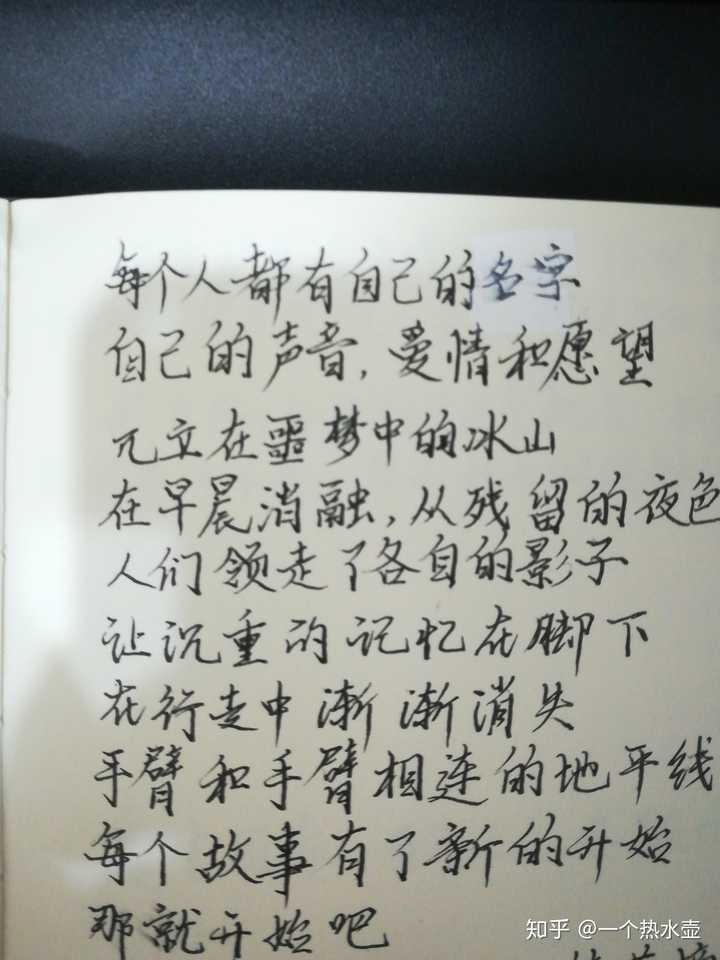 每个人都有自己的名字
自己的声音，爱情和愿望
兀立在噩梦中的冰山
在早晨消融，从残留的夜色
人们领走了各自的影子
让沉重的记忆在脚下
在行走中渐渐消失
手臂和手臂相连的地平线
每个故事有了新的开始
那就开始吧
知乎 @一个热水壶